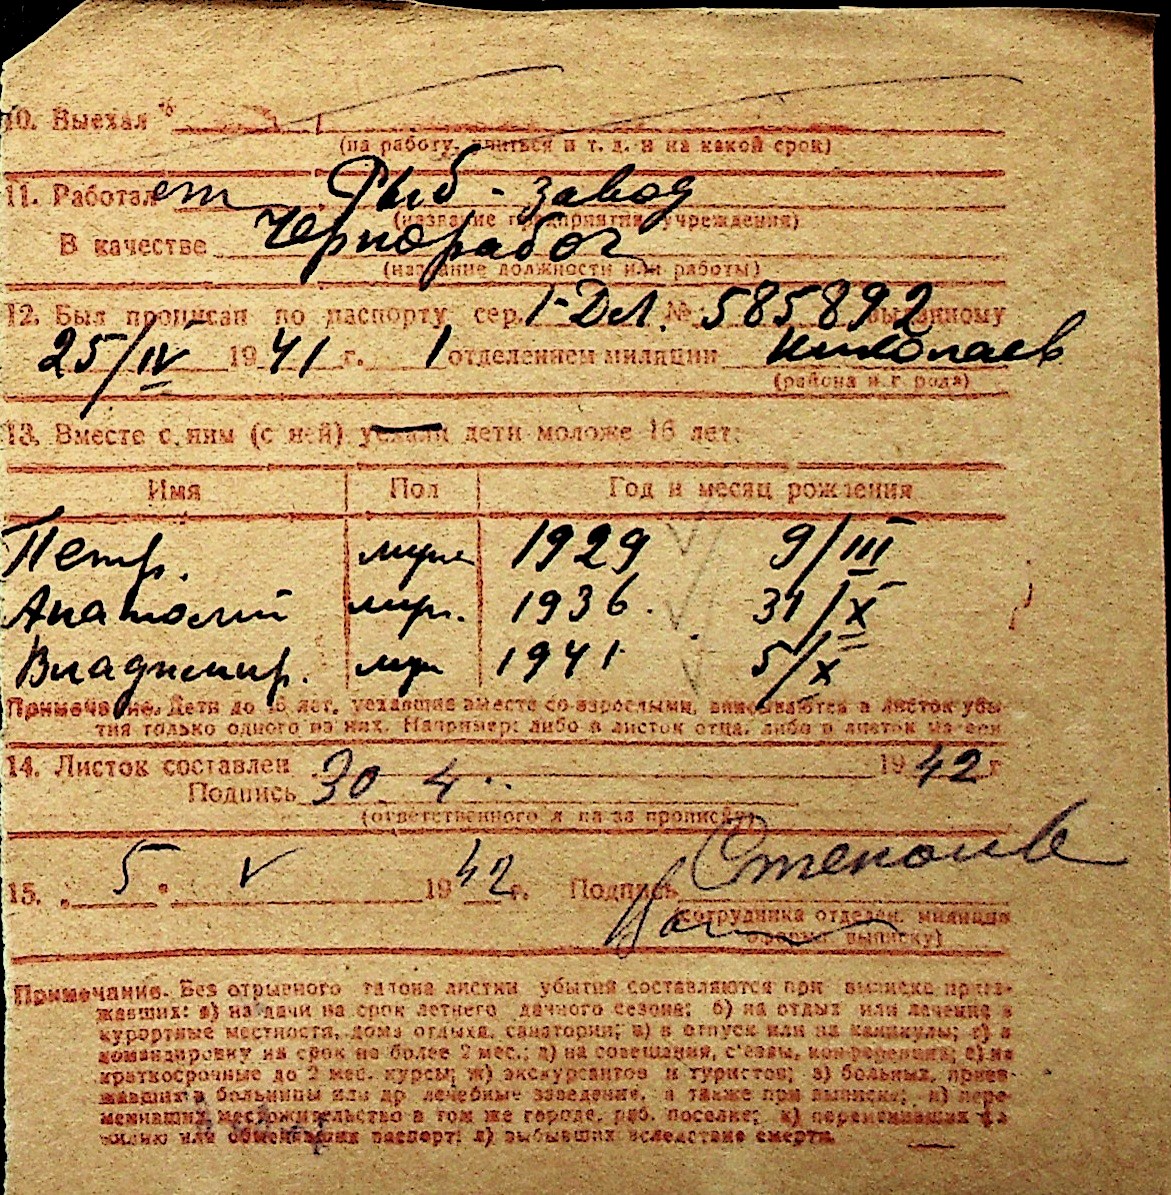 10. Выехал
(на работу, учиться и т. д. и на какой срок)
11. Работает Рыб-завод
(название предприятия, учреждения)
В качестве Чернорабоч
(название должности или работы)
12. Был прописан по паспорту сер. 1-Дл. № 585892 выданному
25/IV 1941 г. 1 отделением милиции Николаев
(района и города)
13. Вместе с ним (с ней) уехали дети моложе 16 лет:
Имя Пол Год и месяц рождения
Петр. муж 1929 9/III
Анатолий муж. 1936. 31/X
Владимир. муж 1941 5/X
Примечание. Дети до 16 лет, уехавшие вместе со взрослыми, вписываются в листок убы-
тия только одного из них. Например: либо в листок отца, либо в листок матери
14. Листок составлен 30 4. 1942 г
Подпись
(ответственного л на за прописку)
15. 5. V 1942 г. Подпись
(сотрудника отделен. милиции
оформ. выписку)
Примечание. Без отрывного талона листки убытия составляются при выписке приез-
жавших: а) на дачи на срок летнего дачного сезона; б) на отдых или лечение в
курортные местности, дома отдыха, санатории; в) в отпуск или на каникулы; г) в
командировку на срок не более 2 мес.; д) на совещания, с'езды, конференции; е) на
краткосрочные до 2 мес. курсы; ж) экскурсантов и туристов; з) больных, приез-
жавших в больницы или др лечебные заведение, а также при выписке; и) пере-
менивших местожительство в том же городе, раб. поселке; к) переменивших фа-
милию или обменявших паспорт; л) выбывших вследствие смерти.